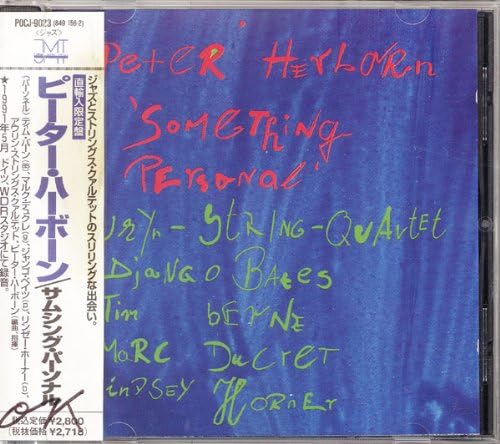 POCJ-9023 (849 156-2)
〈ジャズ〉
JMT
ジャズとストリングス・クァルテットのスリリングな出会い。
直輸入限定盤
ピーター・ハーボーン/サムシング・パーソナル
(パーソネル)ティム・バーン(as)、マルク・デュクレ(g)、ジャンゴ・ベイツ(p)、リンゼー・ホーナー(b)、
アウリン・ストリングス・クァルテット、ピーター・ハーボーン(編曲、指揮)
★1991年5月 ドイツ、WDRスタジオにて録音。
税込定価¥2,800
(税抜価格¥2,718)
PeteR HerborN
'SOMETHING
PERSONAL'
uryn-STRING-QuARTET
DjANGO BATES
Tim bERNE
MARC DuCRET
iNDSEY HORNER